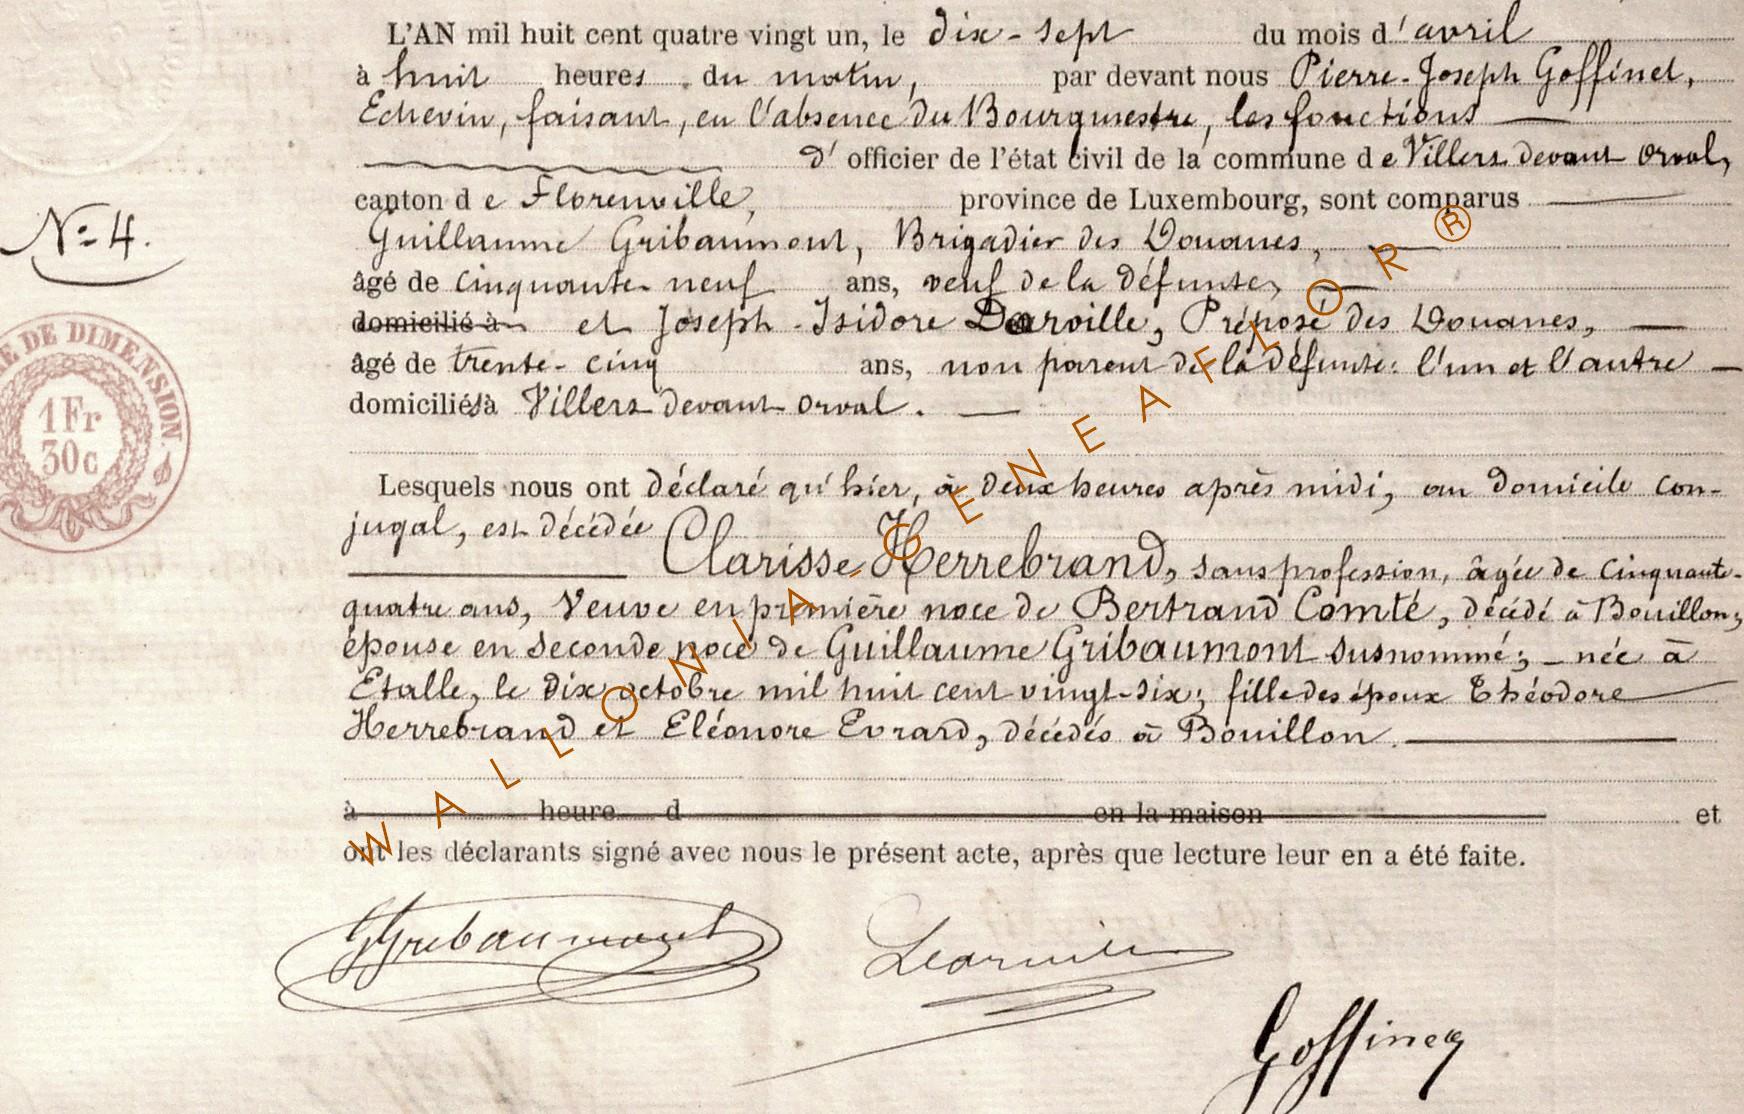 L'AN mil huit cent quatre vingt un, le dix-sept du mois d'avril
à huit heures du matin, par devant nous Pierre-Joseph Goffinet,
Echevin, faisant, en l'absence du Bourgmestre, les fonctions
d' officier de l'état civil de la commune de Villers devant Orval,
canton de Florenville, province de Luxembourg, sont comparus
N° 4.
Guillaume Gribaumont, Brigadier des Douanes,
âgé de cinquante-neuf ans, veuf de la défunte,
domicilié à et Joseph-Isidore Darville, Préposé des Douanes,
âgé de trente-cinq ans, non parent de la défunte: l'un et l'autre
domiciliés à Villers devant Orval.
TIMBRE DE DIMENSION.
1Fr
30c
Lesquels nous ont déclaré qu'hier, à deux heures après midi, au domicile con-
jugal, est décédée
Clarisse Herrebrand, sans profession, âgée de cinquante-
quatre ans, Veuve en première noce de Bertrand Comté, décédé à Bouillon;
épouse en seconde noce de Guillaume Gribaumont susnommé; née à
Etalle, le dix octobre mil huit cent vingt-six; fille des époux Théodore
Herrebrand et Eléonore Evrard, décédés à Bouillon.
à heure d en la maison et
ont les déclarants signé avec nous le présent acte, après que lecture leur en a été faite.
GGribaumont
Goffinet
WALLONIA-GENEAFLOR®